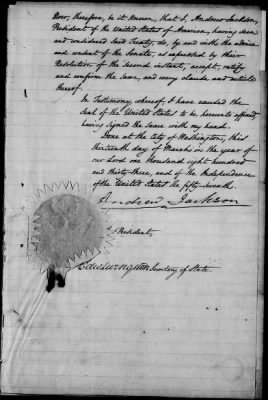 Now, therefore, be it known, that I, Andrew Jackson,
President of the United States of America, having seen
and considered said Treaty, do, by and with the advice
and consent of the Senate, as expressed by their
Resolution of the second instant, accept, ratify
and confirm the same, and every clause and article
thereof.
In Testimony whereof, I have caused the
Seal of the United States to be hereunto affixed,
having signed the same with my hand.
Done at the City of Washington, this
thirteenth day of March, in the year of
our Lord one thousand eight hundred
and thirty three, and of the Independence
of the United States the fifty-seventh.
Andrew Jackson
President,
Edw. Livingston Secretary of State.